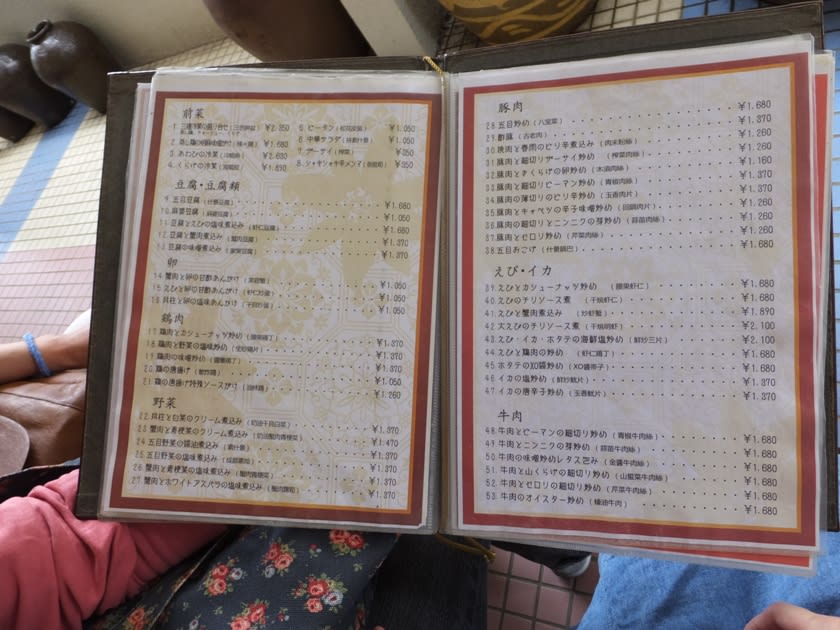 前菜
1. 三種冷菜の盛り合せ ¥2.350
2. 蒸し鶏の胡麻味噌だれ ¥1.680
3. あわびの冷菜 ¥2.630
4. くらげの冷菜 ¥1.890
5. ピータン ¥1.050
6. 中華サラダ ¥1.050
7. ザーサイ (榨菜) ¥350
8. シャキシャキ辛メンマ ¥350
豆腐・豆腐類
9. 五目豆腐 (什景豆腐) ¥1.680
10. 麻婆豆腐 (麻婆豆腐) ¥1.050
11. 豆腐とえびの塩味煮込み (虾仁豆腐) ¥1.680
12. 豆腐と蟹肉煮込み (蟹肉豆腐) ¥1.370
13. 豆腐の味噌煮込み (家常豆腐) ¥1.370
卵
14. 蟹肉と卵の甘酢あんかけ ¥1.050
15. えびと卵の甘酢あんかけ (虾仁炒蛋) ¥1.050
16. 貝柱と卵の塩味あんかけ (干貝炒蛋) ¥1.050
鶏肉
17. 鶏肉とカシューナッツ炒め (腰果鶏丁) ¥1.370
18. 鶏肉と野菜の塩味炒め ¥1.370
19. 鶏肉の味噌炒め ¥1.370
20. 鶏の唐揚げ ¥1.050
21. 鶏の唐揚げ特殊ソースがけ (油淋鶏) ¥1.260
野菜
22. 貝柱と白菜のクリーム煮込み (奶油干貝白菜) ¥1.370
23. 蟹肉と青梗菜のクリーム煮込み (奶油蟹肉青梗菜) ¥1.470
24. 五目野菜の醤油煮込み (素什景) ¥1.370
25. 五目野菜の塩味煮込み ¥1.370
26. 蟹肉と青梗菜の塩味煮込み (蟹肉青梗菜) ¥1.370
27. 蟹肉とホワイトアスパラの塩味煮込み (蟹肉露筍) ¥1.370
豚肉
28. 五目炒め (八宝菜) ¥1.680
29. 酢豚 (古老肉) ¥1.370
30. 挽肉と春雨のピリ辛煮込み (肉末粉絲) ¥1.260
31. 豚肉と細切りザーサイ炒め (榨菜肉絲) ¥1.260
32. 豚肉ときくらげの卵炒め (木須肉絲) ¥1.160
33. 豚肉と細切りピーマン炒め (青椒肉絲) ¥1.370
34. 豚肉の薄切りのピリ辛炒め (玉香肉片) ¥1.260
35. 豚肉とキャベツの辛子味噌炒め (回鍋肉片) ¥1.260
36. 豚肉の細切りとニンニクの芽炒め (蒜苗肉絲) ¥1.260
37. 豚肉とセロリ炒め (芹菜肉絲) ¥1.260
38. 五目おこげ (什景鍋巴) ¥1.680
えび・イカ
39. えびとカシューナッツ炒め (腰果虾仁) ¥1.680
40. えびのチリソース煮 (干焼虾仁) ¥1.680
41. えびと蟹肉煮込み (炒虾蟹) ¥1.890
42. 大えびのチリソース煮 (干焼明虾) ¥2.100
43. えび・イカ・ホタテの海鮮塩炒め (鮮炒三片) ¥2.100
44. えびと鶏肉の炒め (虾仁鶏丁) ¥1.680
45. ホタテのXO醤炒め (XO醤帯子) ¥1.680
46. イカの塩炒め (鮮炒魷片) ¥1.680
47. イカの唐辛子炒め (玉香魷片) ¥1.370
牛肉
48. 牛肉とピーマンの細切り炒め (青椒牛肉絲) ¥1.680
49. 牛肉とニンニクの芽炒め (蒜苗牛肉絲) ¥1.680
50. 牛肉の味噌炒めレタス包み (金醤牛肉絲) ¥1.680
51. 牛肉と山くらげの細切り炒め (山蜇菜牛肉絲) ¥1.680
52. 牛肉とセロリの細切り炒め (芹菜牛肉絲) ¥1.680
53. 牛肉のオイスター炒め (蠔油牛肉) ¥1.680